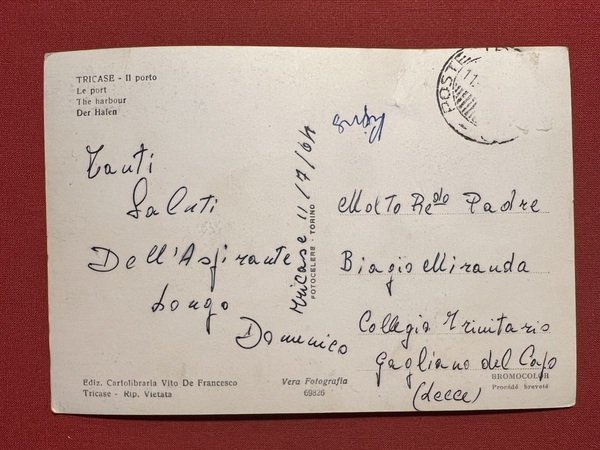 TRICASE - Il porto
Le port
The harbour
Der Hafen
Tanti
Saluti
Dell'Aspirante
Longo
Domenico
Tricase 11/7/64
FOTOCELERE - TORINO
POSTE
11.
Molto Redo Padre
Biagio Miranda
Collegio Trinitario
Gagliano del Capo
(Lecce)
Ediz. Cartolibraria Vito De Francesco
Tricase - Rip. Vietata
Vera Fotografia
69826
BROMOCOLOR
Procédé breveté